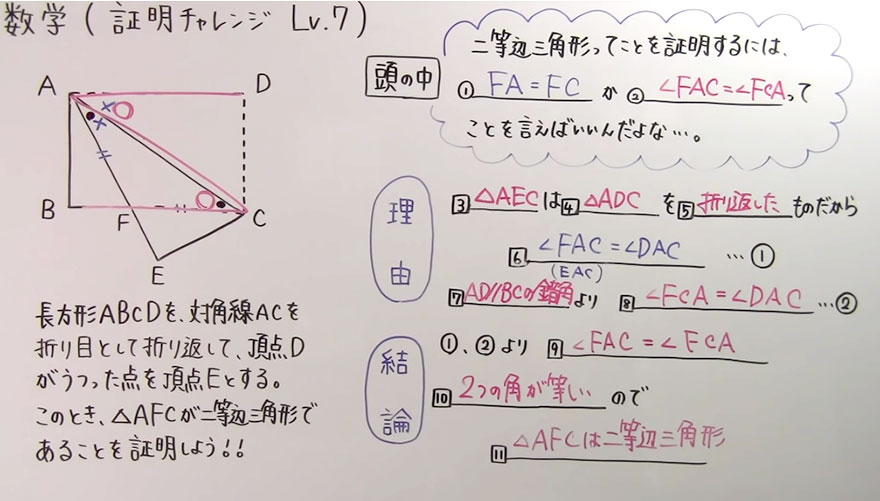 数学(証明チャレンジ Lv.7)
A
D
B
F
C
E
長方形ABCDを、対角線ACを
折り目として折り返して、頂点D
がうつった点を頂点Eとする。
このとき、△AFCが二等辺三角形で
あることを証明しよう!!
頭の中
二等辺三角形ってことを証明するには、
① FA=FC か ② ∠FAC=∠FCAって
ことを言えばいいんだよな…。
理由
3 △AECは 4 △ADC を 5 折り返した ものだから
6 ∠FAC=∠DAC …①
(EAC)
7 AD//BCの錯角より 8 ∠FCA=∠DAC …②
結論
①、②より 9 ∠FAC=∠FCA
10 2つの角が等しい ので
11 △AFCは二等辺三角形